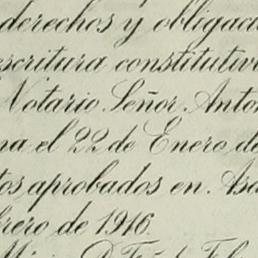 derechos y obligaci
escritura constitutiv
Notario Señor Anto
na el 22 de Enero de
tos aprobados en Asa
brero de 1916.